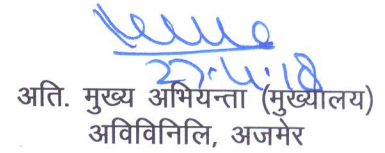 27.4.18
अति. मुख्य अभियन्ता (मुख्यालय)
अविविनिलि, अजमेर